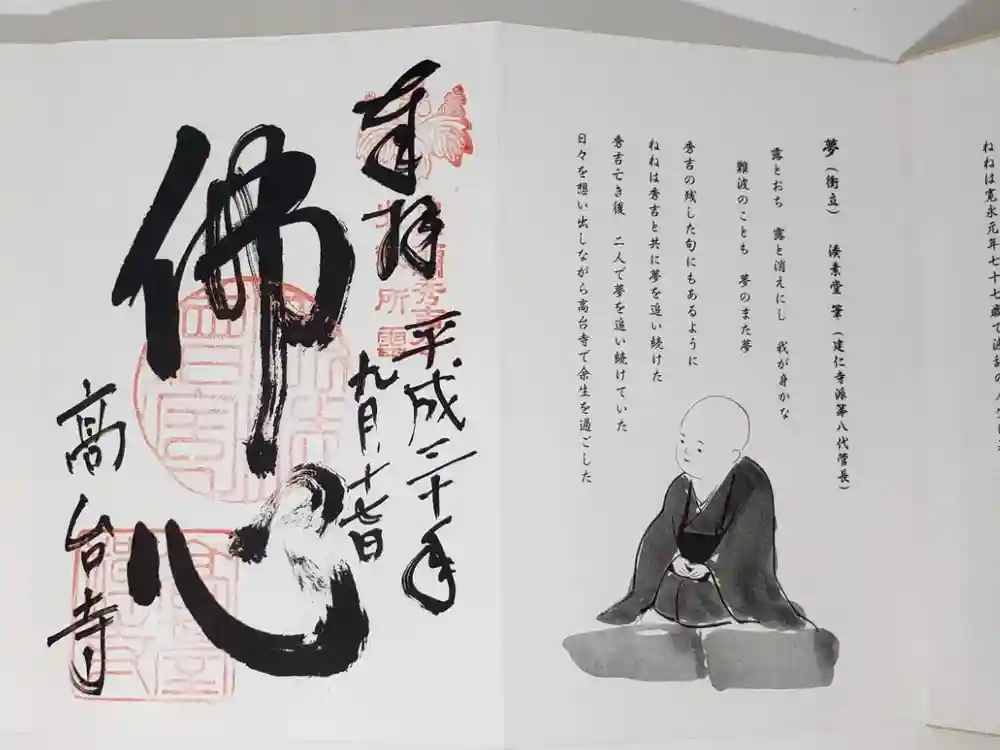 ねねは寛永元年七十七歳で波乱の
夢（衝立）　湊素堂 筆（建仁寺派第八代管長）
露とおち　露と消えにし　我が身かな
難波のことも　夢のまた夢
秀吉の残した句にもあるように
ねねは秀吉と共に夢を追い続けた
秀吉亡き後　二人で夢を追い続けていた
日々を想い出しながら高台寺で余生を過ごした
奉拝
平成三十年
九月十七日
佛心
高台寺